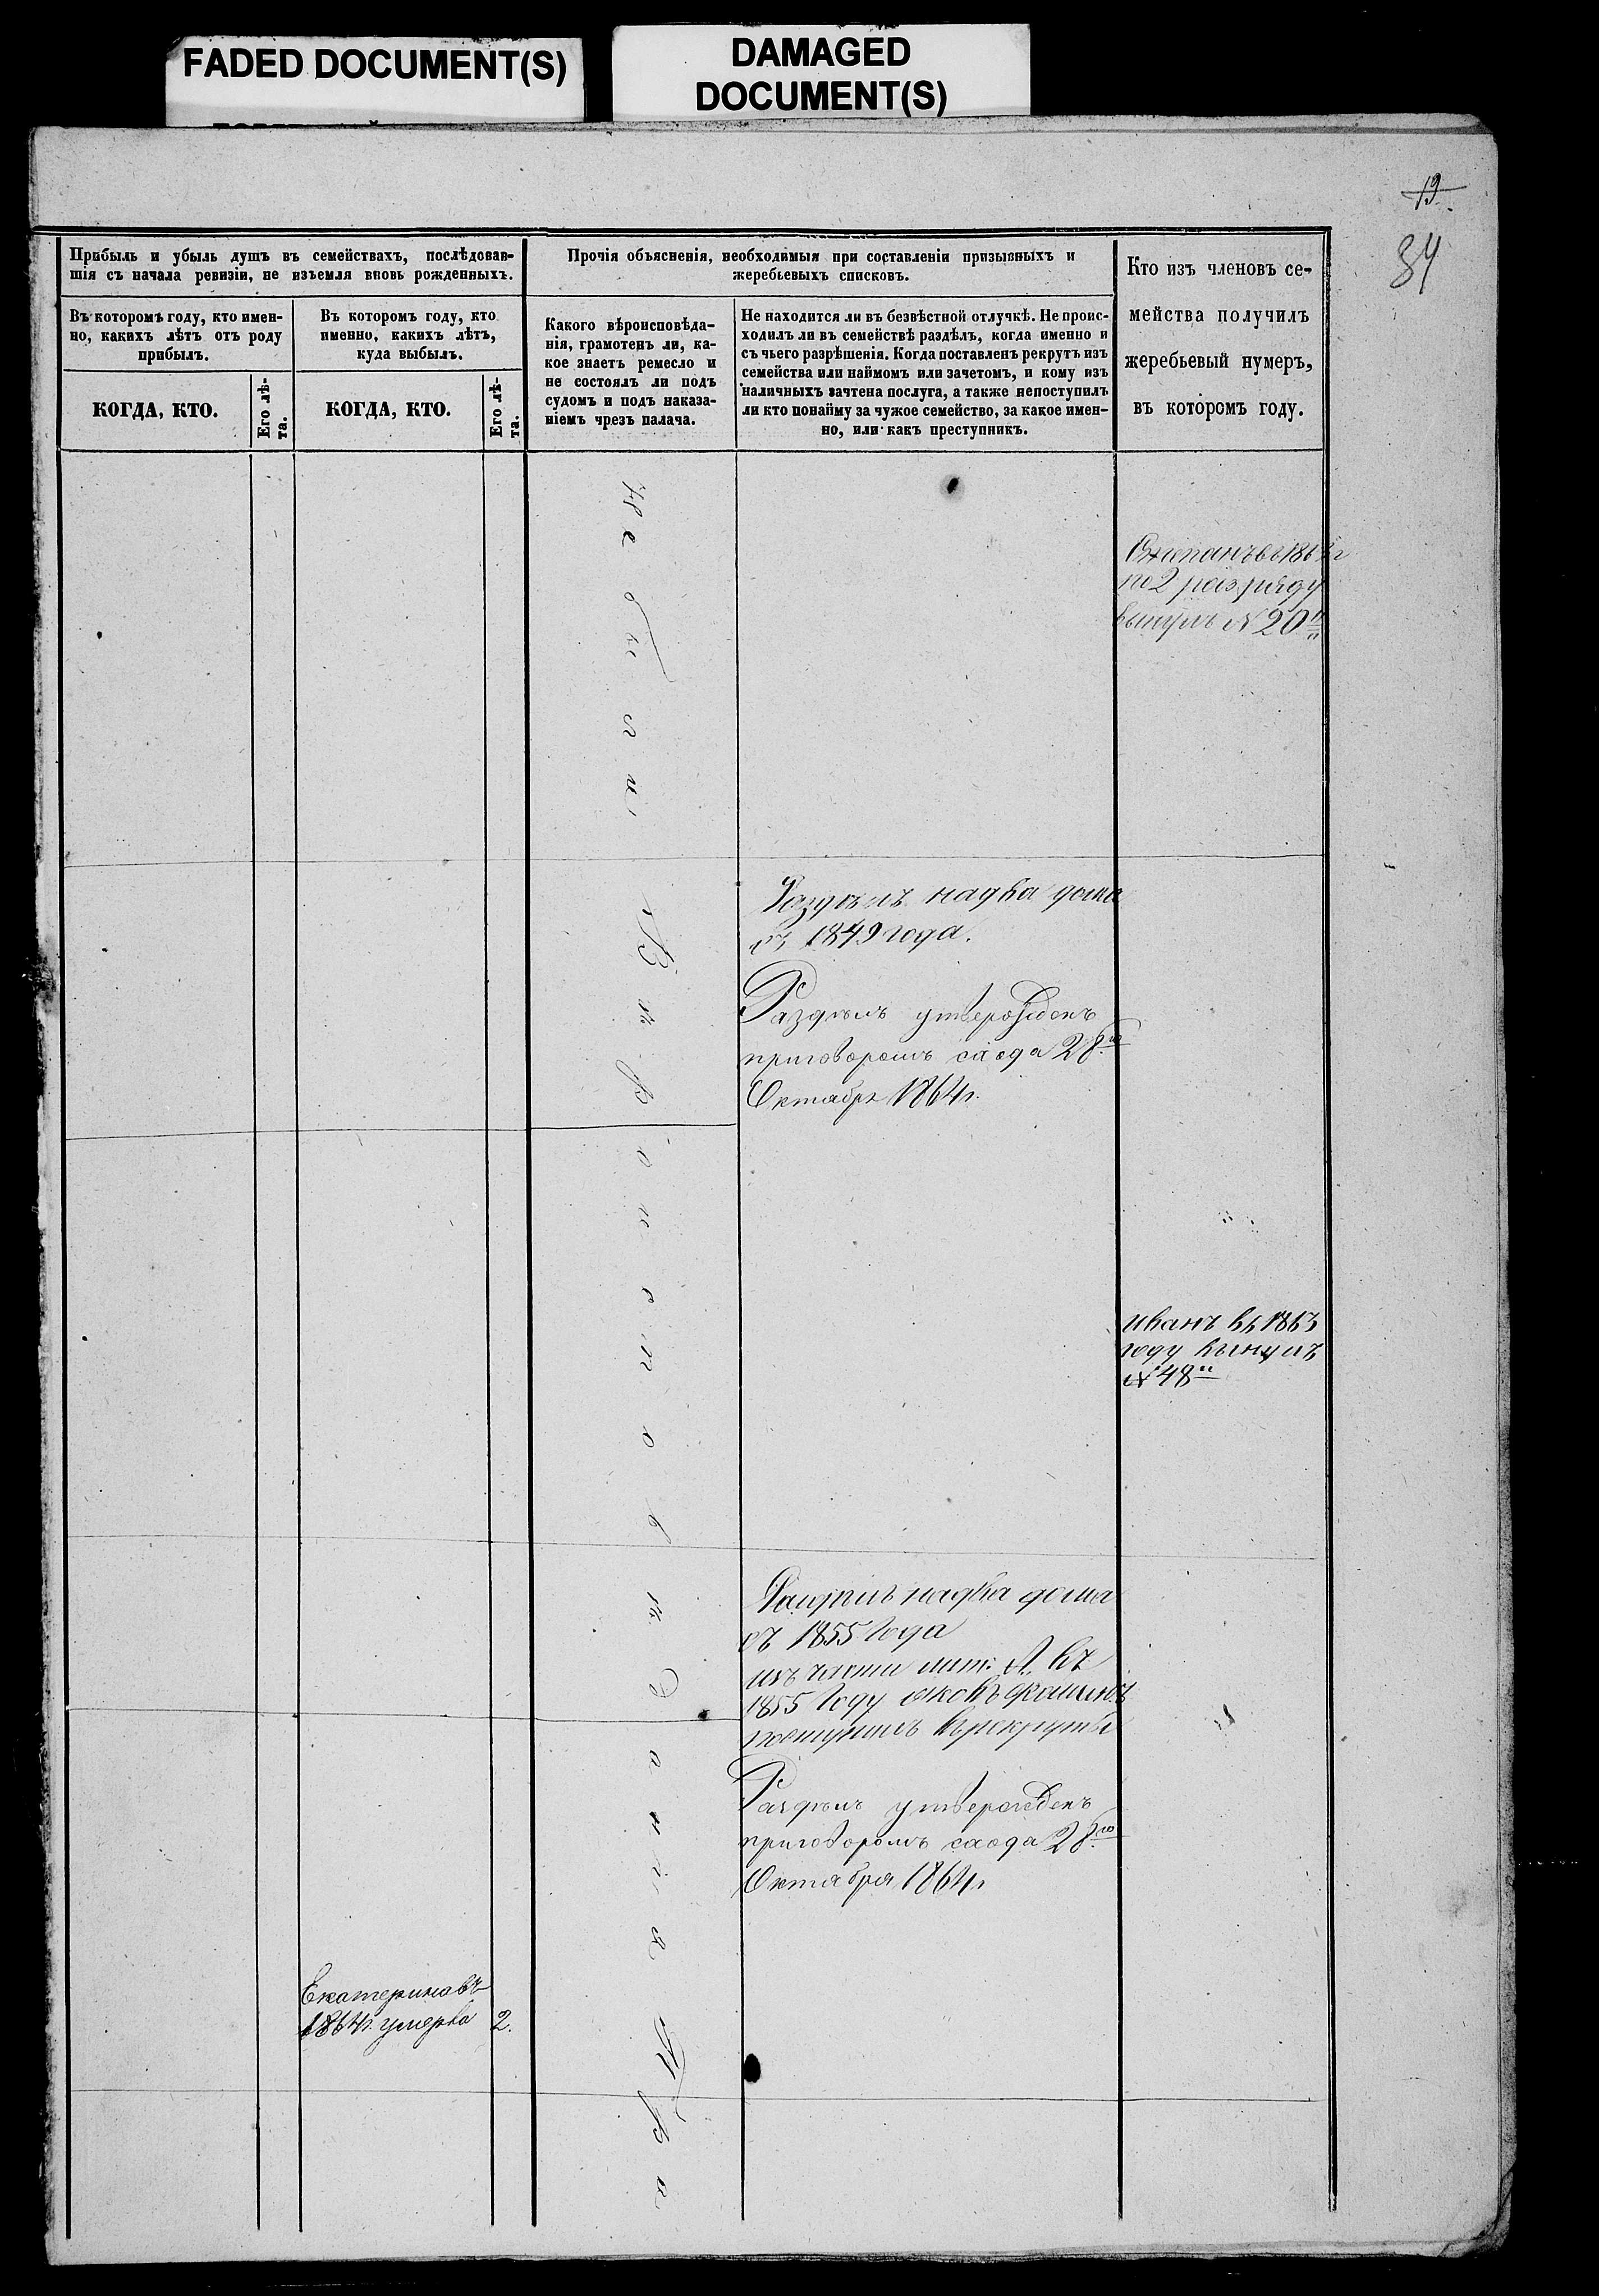 FADED DOCUMENT(S)
DAMAGED
DOCUMENT(S)
19
34
Прибыль и убыль душъ въ семействахъ, послѣдовав-
шія съ начала ревизіи, не изъемля вновь рожденныхъ.
Въ которомъ году, кто имен-
но, какихъ лѣтъ отъ роду
прибылъ.
КОГДА, КТО.
Его лѣ-
та.
Въ которомъ году, кто
именно, какихъ лѣтъ,
куда выбылъ.
КОГДА, КТО.
Его лѣ-
та.
Прочія объясненія, необходимыя при составленіи призывныхъ и
жеребьевыхъ списковъ.
Какого вѣроисповѣда-
нія, грамотенъ ли, ка-
кое знаетъ ремесло и
не состоялъ ли подъ
судомъ и подъ наказа-
ніемъ чрезъ палача.
Не находится ли въ безвѣстной отлучкѣ. Не проис-
ходилъ ли въ семействѣ раздѣлъ, когда именно и
съ чьего разрѣшенія. Когда поставленъ рекрутъ изъ
семейства или наймомъ или зачетомъ, и кому изъ
наличныхъ зачтена послуга, а также непоступилъ
ли кто понайму за чужое семейство, за какое имен-
но, или какъ преступникъ.
Кто изъ членовъ се-
мейства получилъ
жеребьевый нумеръ,
въ которомъ году.
по 2 разряду
вынулъ № 20
Раздѣлъ на два дома
съ 1849 года.
Раздѣлъ утвержденъ
приговоромъ схода 28го
Октября 1864г.
Иванъ въ 1863
году вынулъ
№ 48
Раздѣлъ на два дома
съ 1855 года
изъ части лит. А. въ
1855 году Яковъ
поступилъ в рекруты
Раздѣлъ утвержденъ
приговоромъ схода 28го
Октября 1864г
Екатерина въ
1864г. умерла 2.